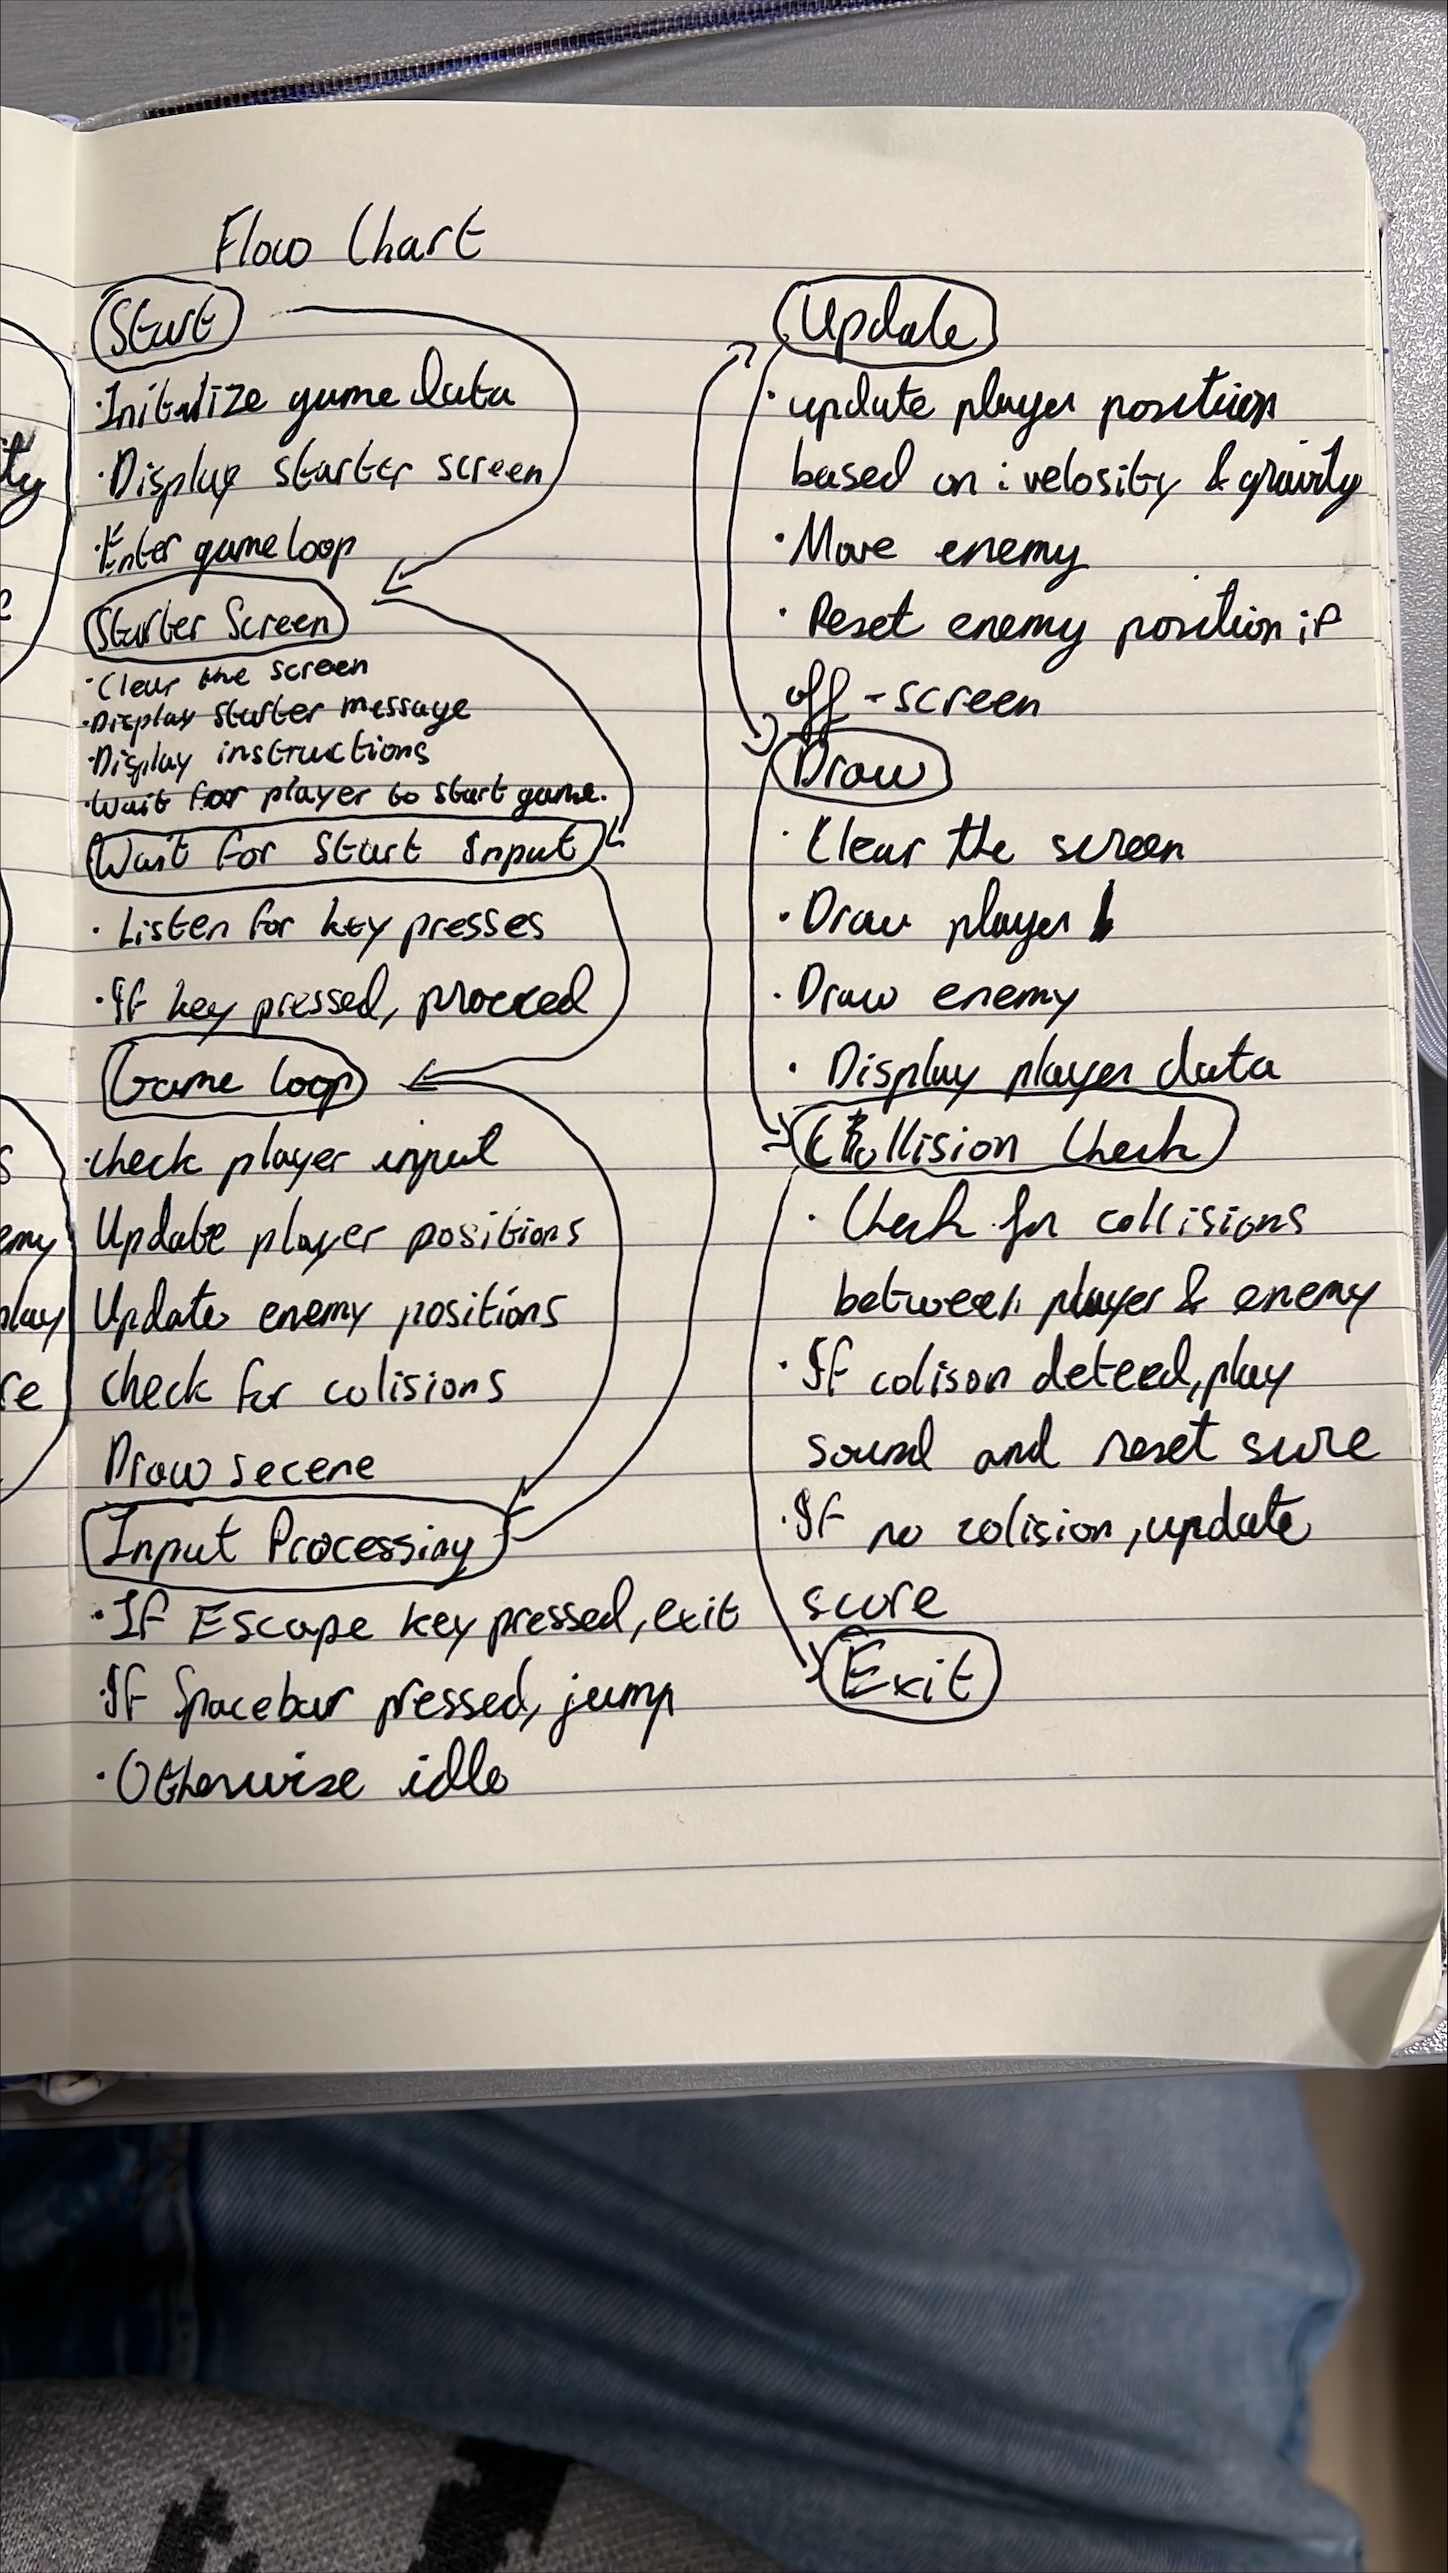 Flow Chart
Start
·Initalize game data
·Display starter screen
·Enter game loop
Starter Screen
·Clear the screen
·Display starter message
·Display instructions
·Wait for player to start game.
Wait for Start Input
· Listen for key presses
·If key pressed, proceed
Game loop
·check player input
Update player positions
Update enemy positions
check for colisions
Draw secene
Input Processing
·If Escape key pressed, exit
·If Spacebar pressed, jump
·Otherwise idle
Update
·update player position
based on : velosity & gravity
·Move enemy
· Reset enemy position if
off-screen
Draw
· Clear the screen
· Draw player
· Draw enemy
· Display player data
Collision Check
· Check for collisions
between player & enemy
· If colison deteed, play
sound and reset score
·If no colision, update
score
Exit
ity
s
emy
play
re